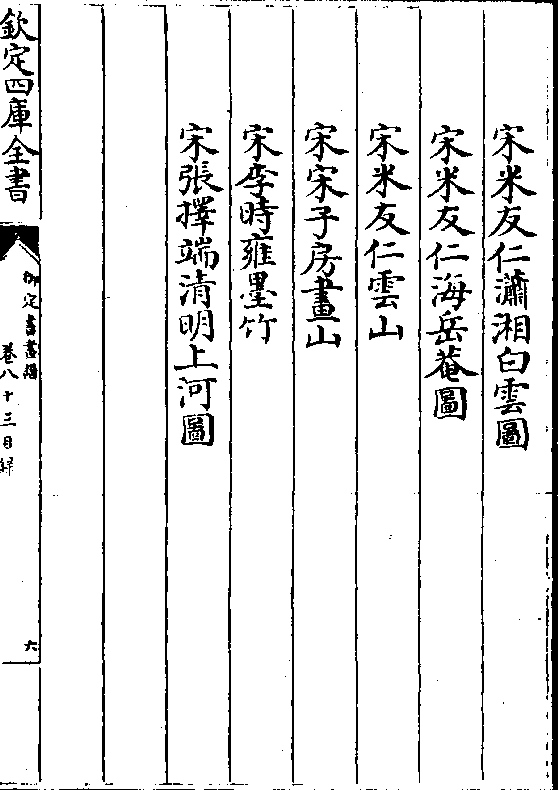 宋米友仁瀟湘白雲圖
宋米友仁海岳菴圖
宋米友仁雲山
宋宋子房畫山
宋李時雍墨竹
宋張擇端清明上河圖
欽定四庫全書
御定書畫譜
卷八十三目録
六